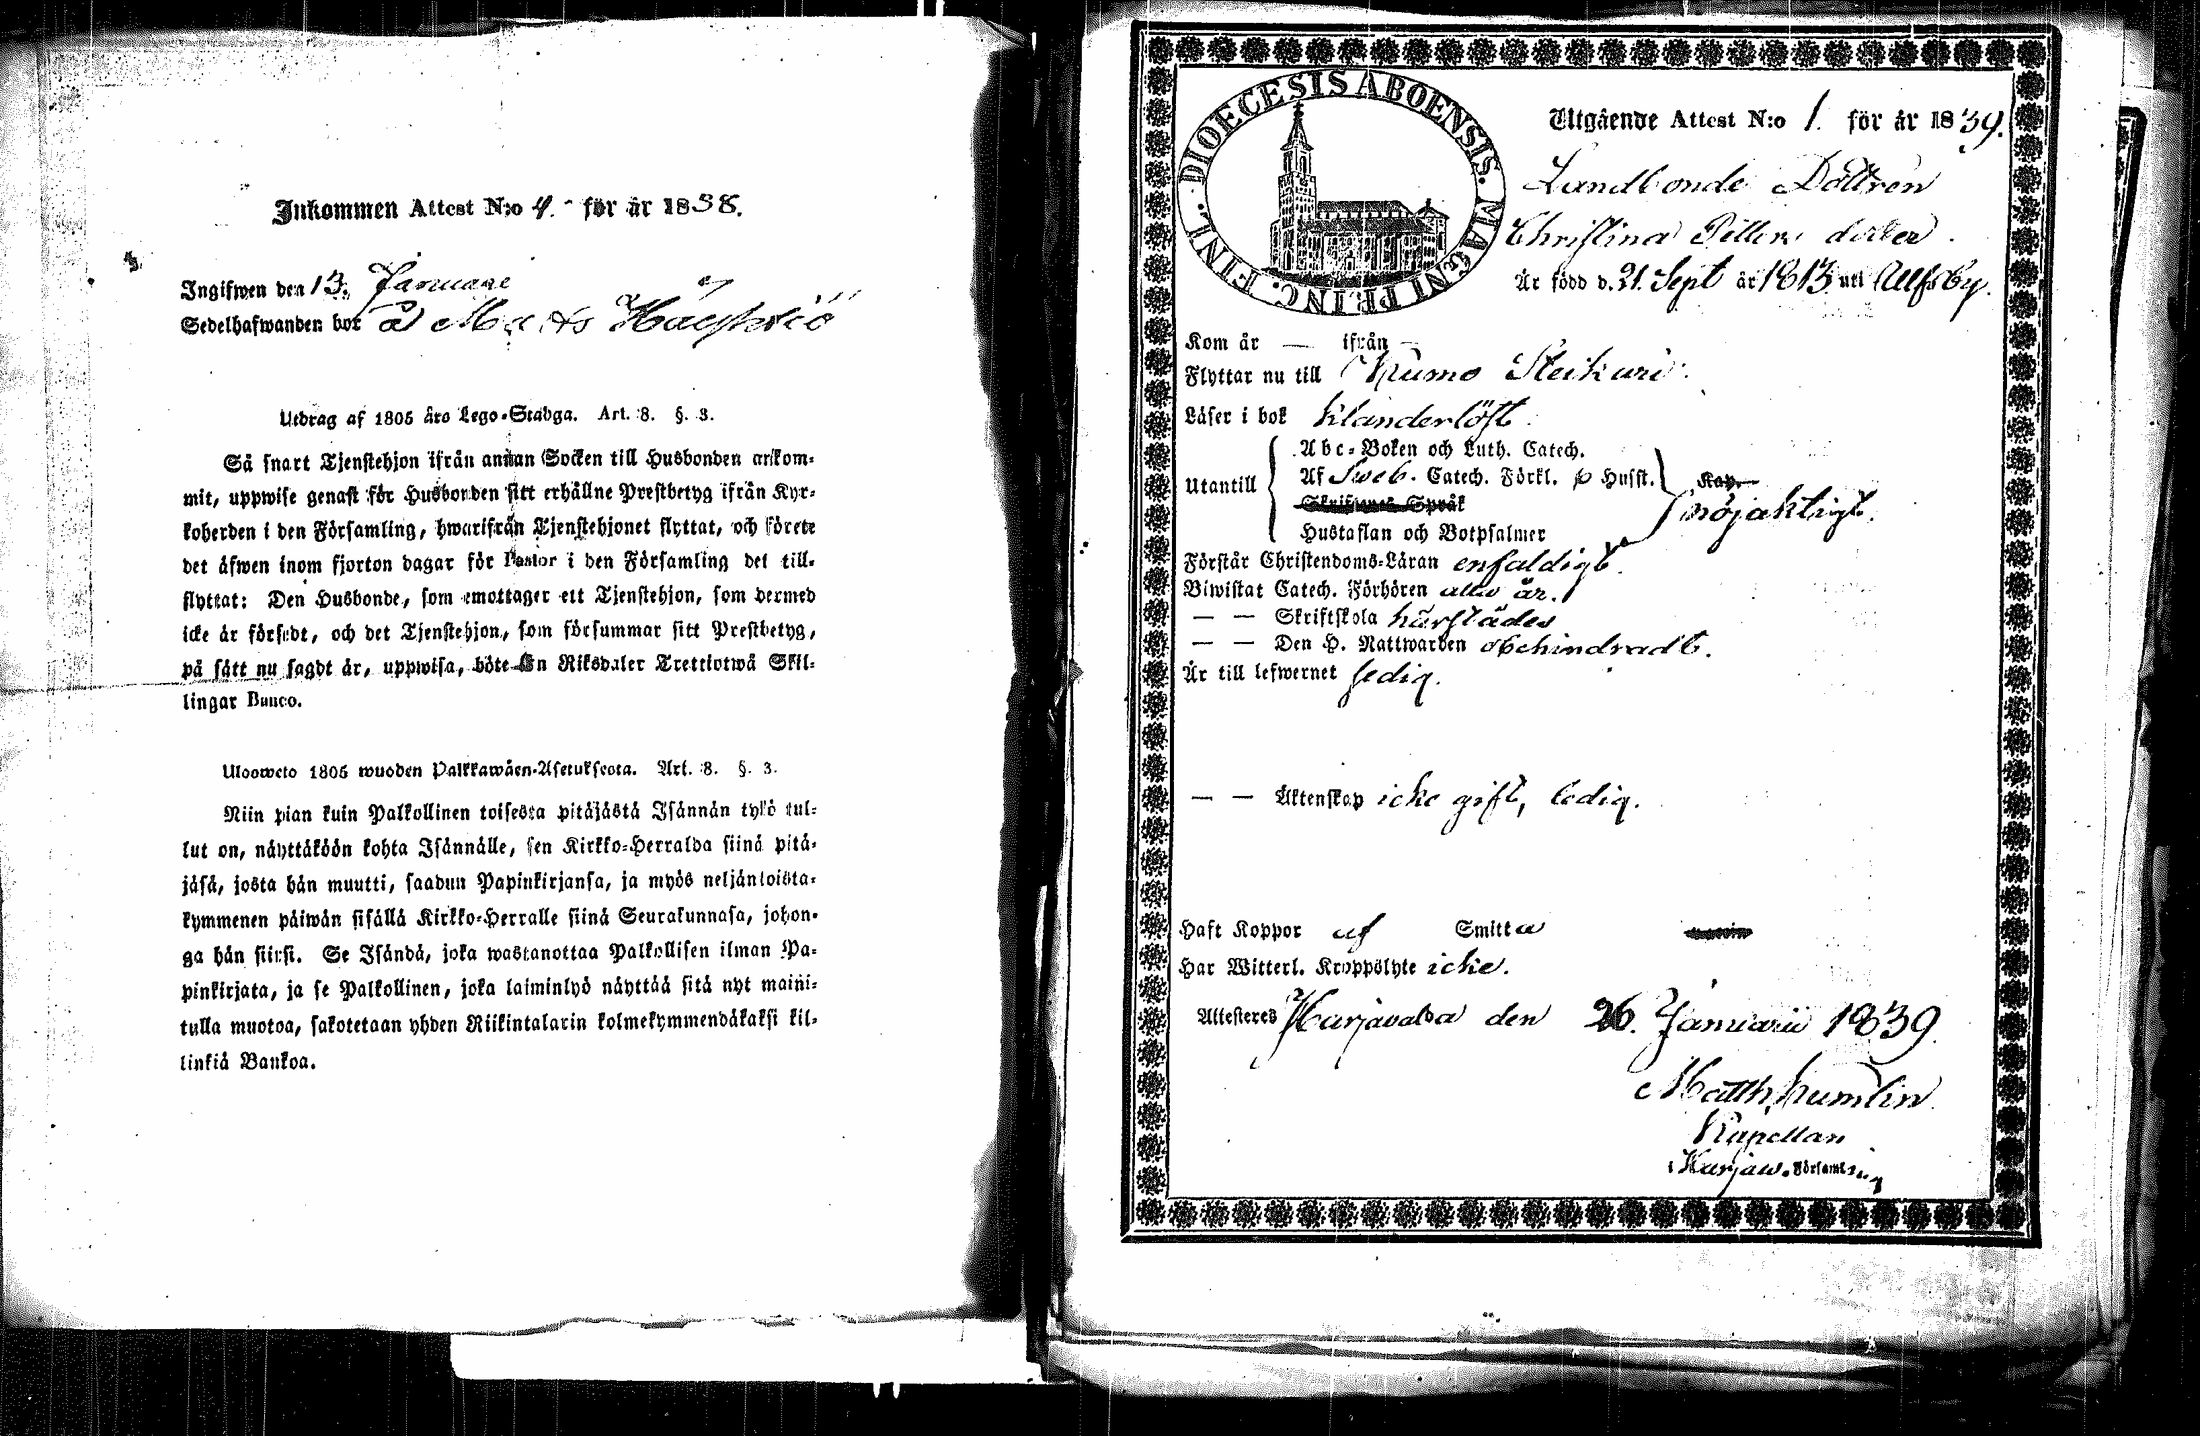 Inkommen Attest N:o 4. för år 1838.
Ingifwen den 13. Januari
Sedelhafwanden bor å
Utdrag af 1805 års Lego-Stadga. Art. 8. §. 3.
Så snart Tjenstehjon ifrån annan Socken till Husbonden ankom-
mit, uppwise genast för Husbonden sitt erhållne Prestbetyg ifrån Kyr-
koherden i den Församling, hwarifrån Tjenstehjonet flyttat, och förete
det äfwen inom fjorton dagar för Pastor i den Församling det till-
flyttat: Den Husbonde, som emottager ett Tjenstehjon, som dermed
icke är försedt, och det Tjenstehjon, som försummar sitt Prestbetyg,
på sätt nu sagdt är, uppwisa, böte En Riksdaler Trettiotwå Skil-
lingar Banco.
Ulosweto 1805 wuoden Palkkawäen-Asetuksesta. Art. 8. §. 3.
Niin pian kuin Palkollinen toisesta pitäjästä Isännän tykö tul-
lut on, näyttäköön kohta Isännälle, sen Kirkko-Herralda siinä pitä-
jäsä, josta hän muutti, saadun Papinkirjansa, ja myös neljäntoista-
kymmenen päiwän sisällä Kirkko-Herralle siinä Seurakunnasa, johon-
ga hän siirsi. Se Isändä, joka wastanottaa Palkollisen ilman Pa-
pinkirjata, ja se Palkollinen, joka laiminlyö näyttää sitä nyt maini-
tulla muotoa, sakotetaan yhden Riikintalarin kolmekymmendäkaksi kil-
linkiä Bankoa.
DIOECESIS ABOENSIS. MAGNI PRINC. FINL.
Utgående Attest N:o 1. för år 1839.
Landbonde Dottren
Christina Petters dotter.
Är född d. 21. Sept år 1813 uti Ulfsby.
Kom år — ifrån —
Flyttar nu till Kumo Steikari.
Läser i bok klanderlöst.
Abc-Boken och Luth. Catech.
Utantill Af Sveb. Catech. Förkl. o Husst.
Skriftenes Språk
nöjaktigt.
Hustaflan och Botpsalmer
Förstår Christendoms-Läran enfaldigt.
Biwistat Catech. Förhören alla år.
— — Skriftskola härstädes
— — Den H. Nattwarden obehindradt.
Är till lefwernet sedig.
— — Äktenskap icke gift, ledig.
Haft Koppor af Smitta
Har Witterl. Kroppslyte icke.
Attesteres Harjavalda den 26. Januarii 1839.
Matth. Humlin
Kapellan
Harjaw. Församling